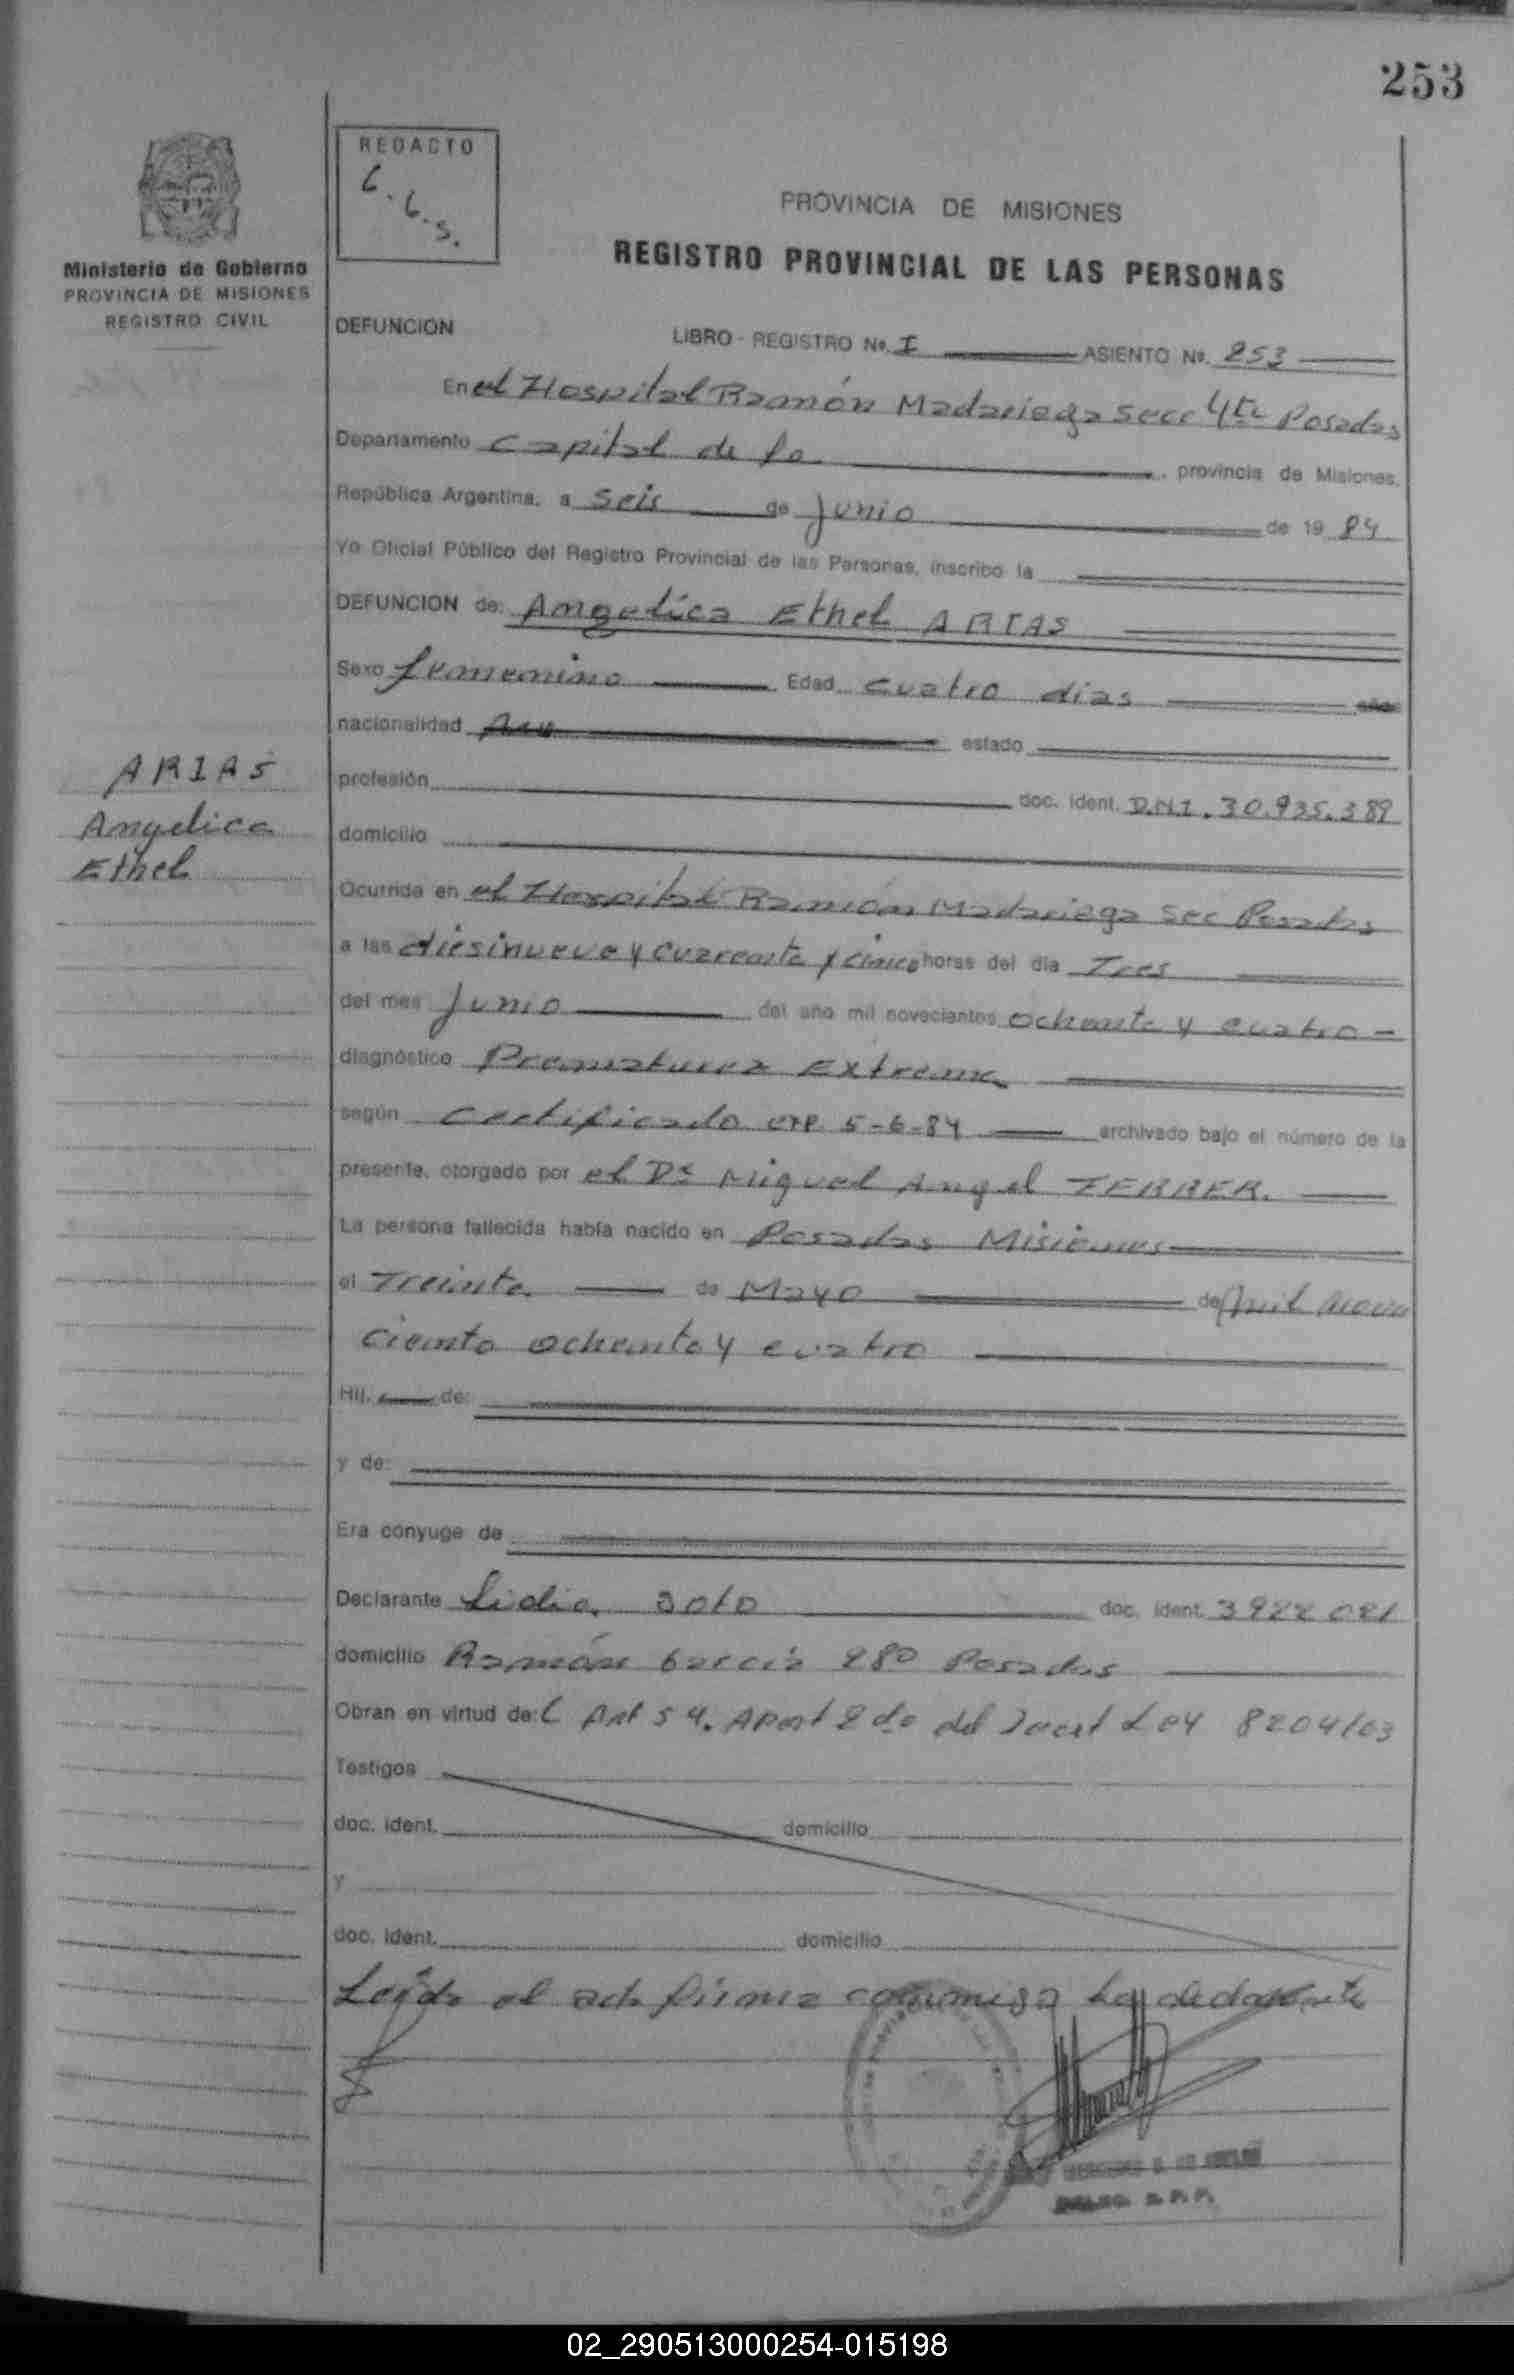 253
REDACTO
Ministerio de Gobierno
PROVINCIA DE MISIONES
REGISTRO CIVIL
PROVINCIA DE MISIONES
REGISTRO PROVINCIAL DE LAS PERSONAS
DEFUNCION LIBRO - REGISTRO Nº. I ASIENTO Nº. 253
En el Hospital Ramón Madariaga secc 4ta Posadas
Departamento Capital de la provincia de Misiones,
República Argentina, a seis de junio de 19 84
Yo Oficial Público del Registro Provincial de las Personas, inscribo la
DEFUNCION de: Angelica Ethel ARIAS
Sexo femenino Edad cuatro dias años
nacionalidad estado
profesión doc. ident. D.N.I. 30.935.389
domicilio
ARIAS
Angelica
Ethel
Ocurrida en el Hospital Ramón Madariaga sec Posadas
a las diesinueve y cuarenta y cinco horas del día Tres
del mes Junio del año mil novecientos ochenta y cuatro -
diagnóstico Prematurez Extrema
según Certificado exp. 5-6-84 archivado bajo el número de la
presente, otorgado por el Dr Miguel Angel FERRER.
La persona fallecida había nacido en Posadas Misiones
el Treinta de Mayo de mil nove
ciento ochenta y cuatro
Hij. de:
y de:
Era cónyuge de
Declarante Lidia Soto doc. ident. 3922021
domicilio Ramón García 280 Posadas
Obran en virtud de: l Art 54. Apart 2do del Ley 8204/63
Testigos
doc. ident. domicilio
y
doc. ident. domicilio
Leída el acta firma conmigo la declarante
02_290513000254-015198